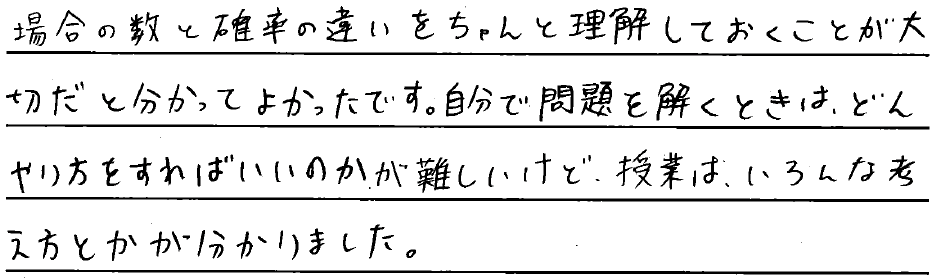 場合の数と確率の違いをちゃんと理解しておくことが大
切だと分かってよかったです。自分で問題を解くときは、どん
やり方をすればいいのかが難しいけど、授業は、いろんな考
え方とかが分かりました。